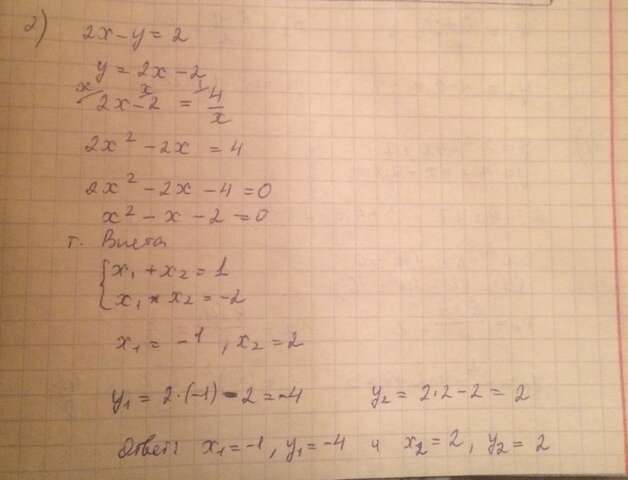 2)
2x - y = 2
y = 2x - 2
x x 1
2x - 2 = 4/x
2x² - 2x = 4
2x² - 2x - 4 = 0
x² - x - 2 = 0
т. Виета
{ x₁ + x₂ = 1
x₁ * x₂ = -2
x₁ = -1, x₂ = 2
y₁ = 2·(-1) - 2 = -4 y₂ = 2·2 - 2 = 2
Ответ: x₁ = -1, y₁ = -4 и x₂ = 2, y₂ = 2